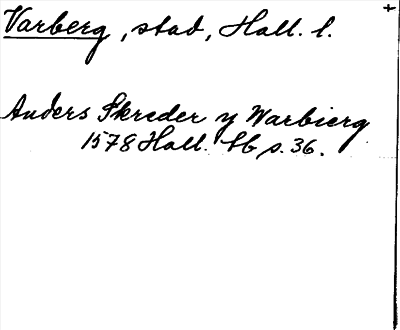 Varberg, stad, Hall. l.
Anders Skreder y Warbierg
1578 Hall. Sb s. 36.